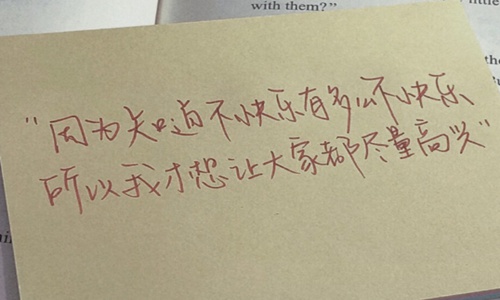 with them?"
"因为知道不快乐有多么不快乐
所以我才想让大家都尽量高兴"